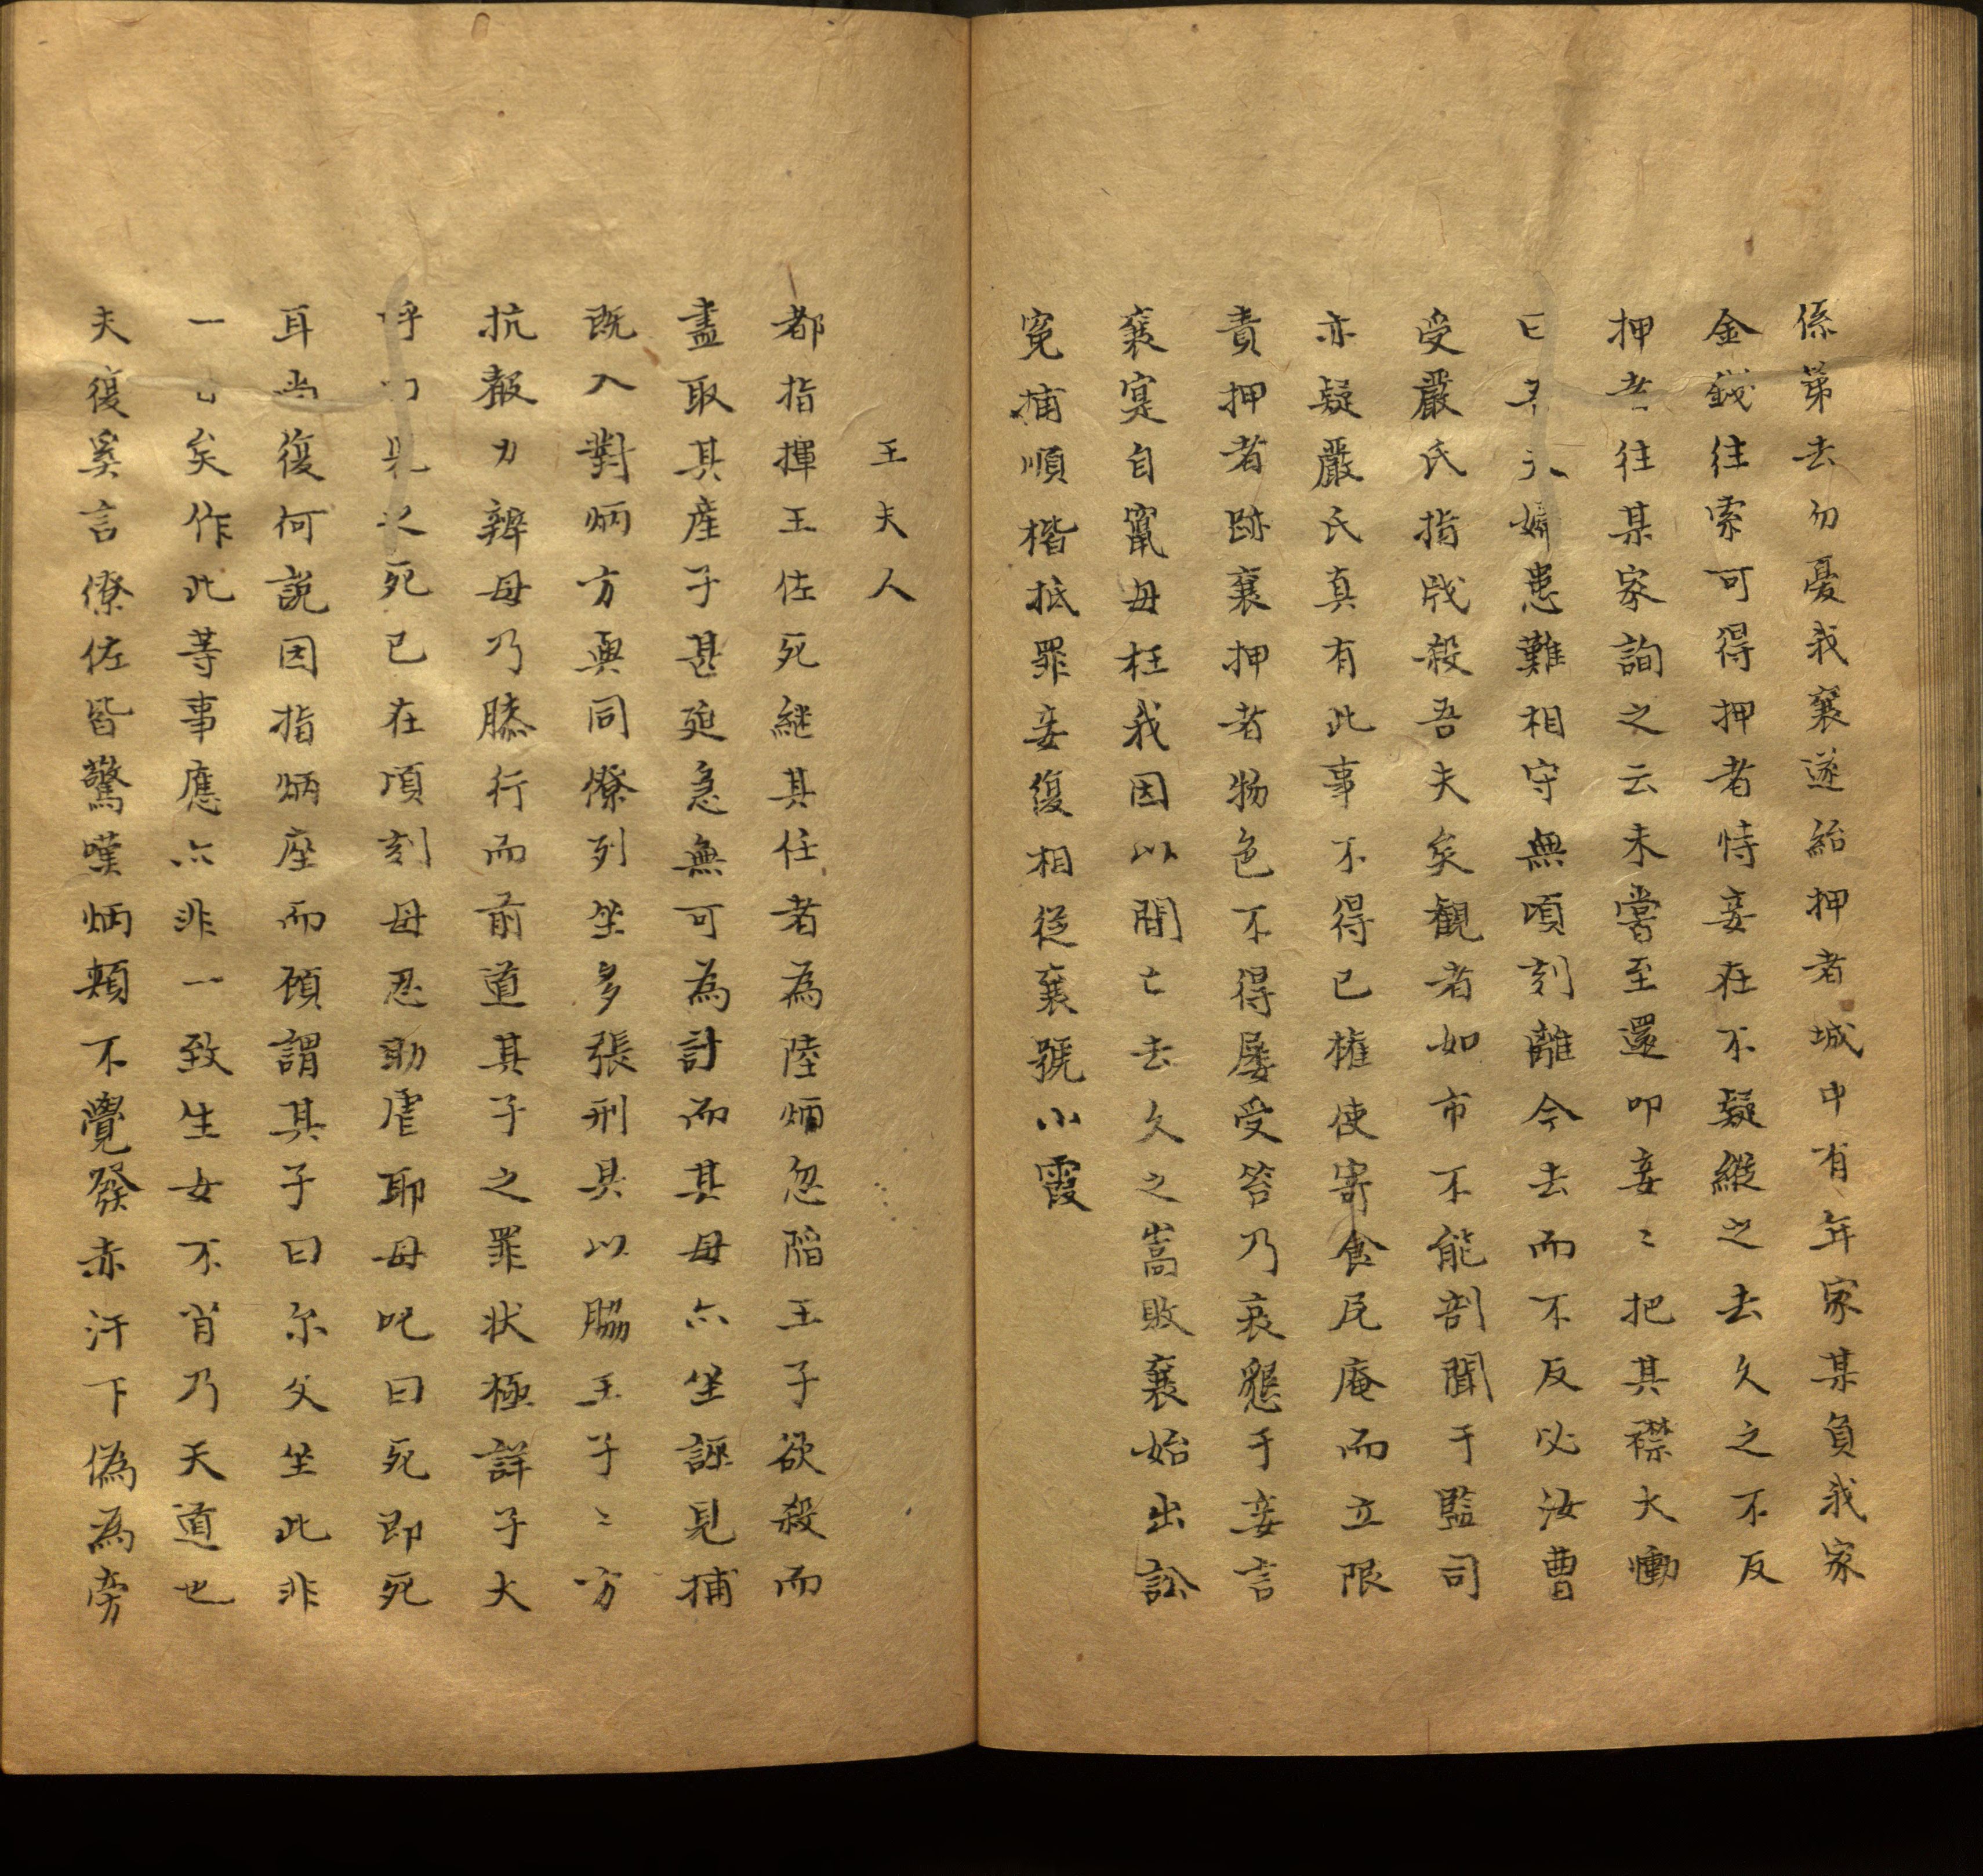 係第去勿憂我襄遂紿押者城中有年家某負我家
金錢往索可得押者恃妾在不疑縱之去久之不反
押者往某家詢之云未嘗至還叩妾〻把其襟大慟
曰婦患難相守無頃刻離今去而不反必汝曹
受嚴氏指戕殺吾夫矣觀者如市不能剖聞于監司
亦疑嚴氏真有此事不得已權使寄食尼庵而立限
責押者跡襄押者物色不得屡受笞乃哀懇于妾言
襄寔自竄毋枉我因以間亡去久之嵩敗襄始出訟
寃捕順楷抵罪妾復相從襄號小霞
王夫人
都指揮王佐死継其任者為陸炳忽陷王子欲殺而
盡取其産子甚廹急無可為計而其母亦坐誣見捕
既入對炳方與同僚列坐多張刑具以脇王子〻方
抗報力辨母乃膝行而前道其子之罪状極詳子大
呼死已在頃刻母忍助虐耶母叱曰死即死
耳尚復何説因指炳座而顧謂其子曰尔父坐此非
一矣作此等事應亦非一致生女不肖乃天道也
夫復奚言僚佐皆驚嘆炳頬不覺發赤汗下偽為旁